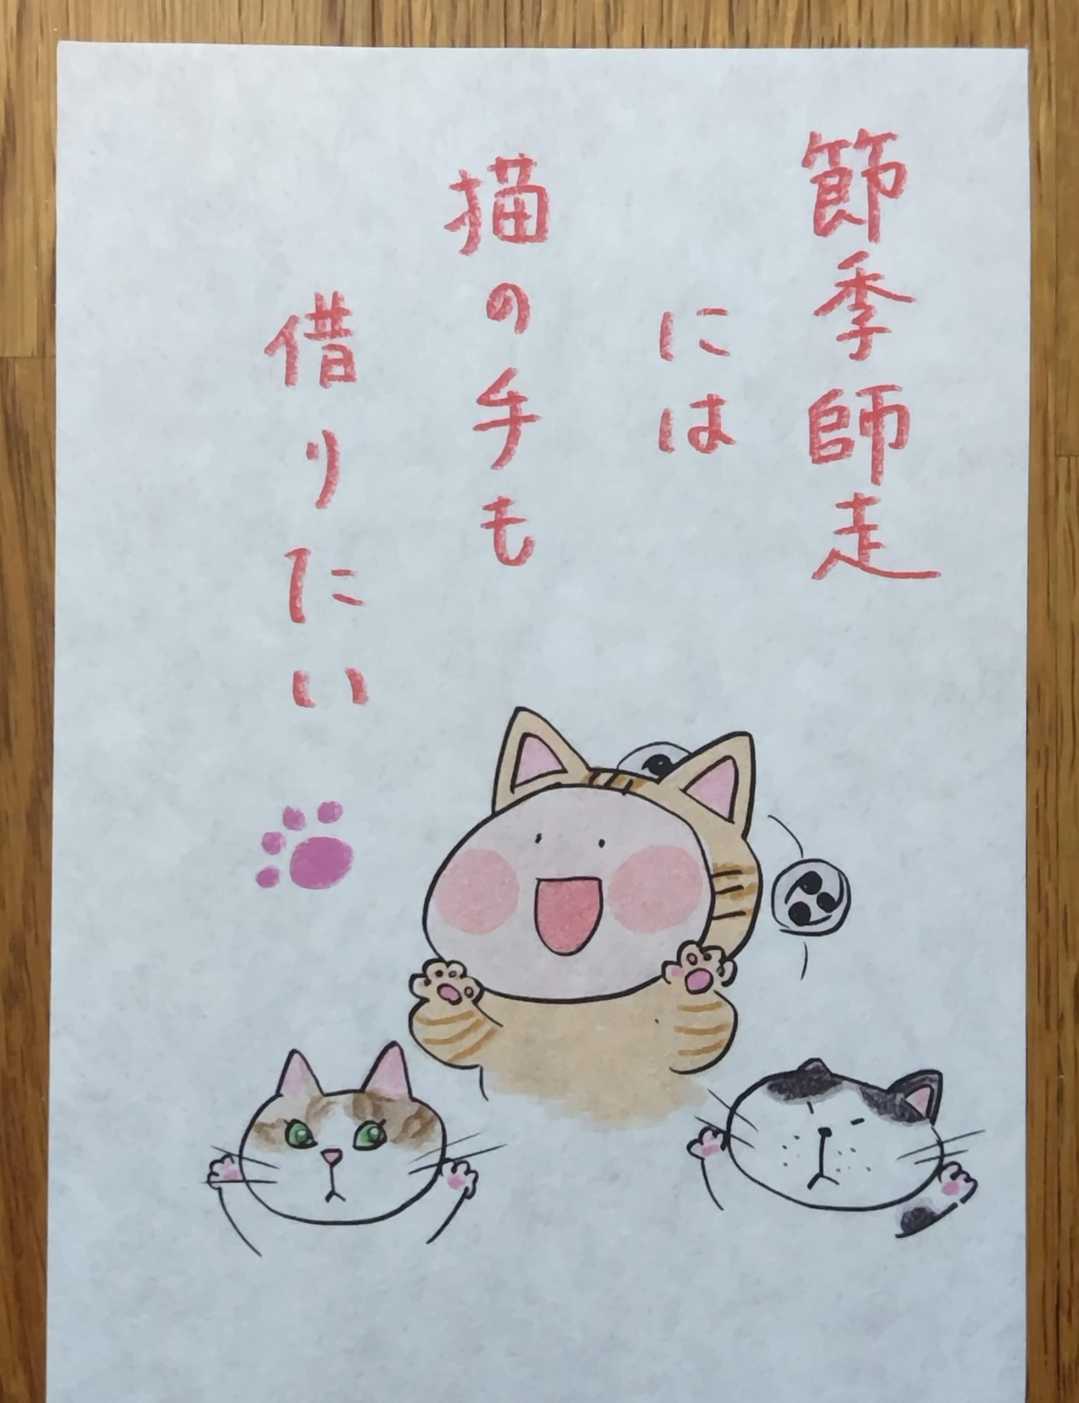 節季師走
には
描の手も
借りたい